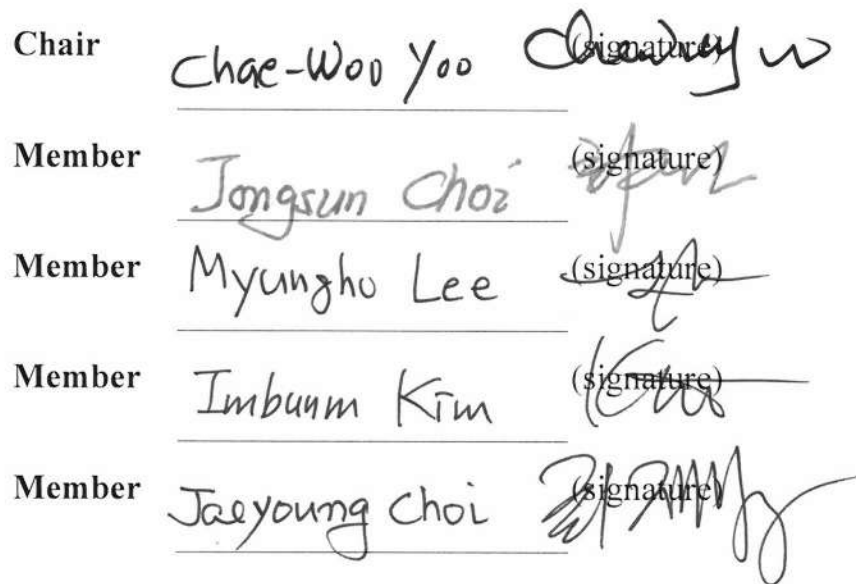 Chair Chae-Woo Yoo (signature)
Member Jongsun Choi (signature)
Member Myungho Lee (signature)
Member Imbunm Kim (signature)
Member Jaeyoung Choi (signature)